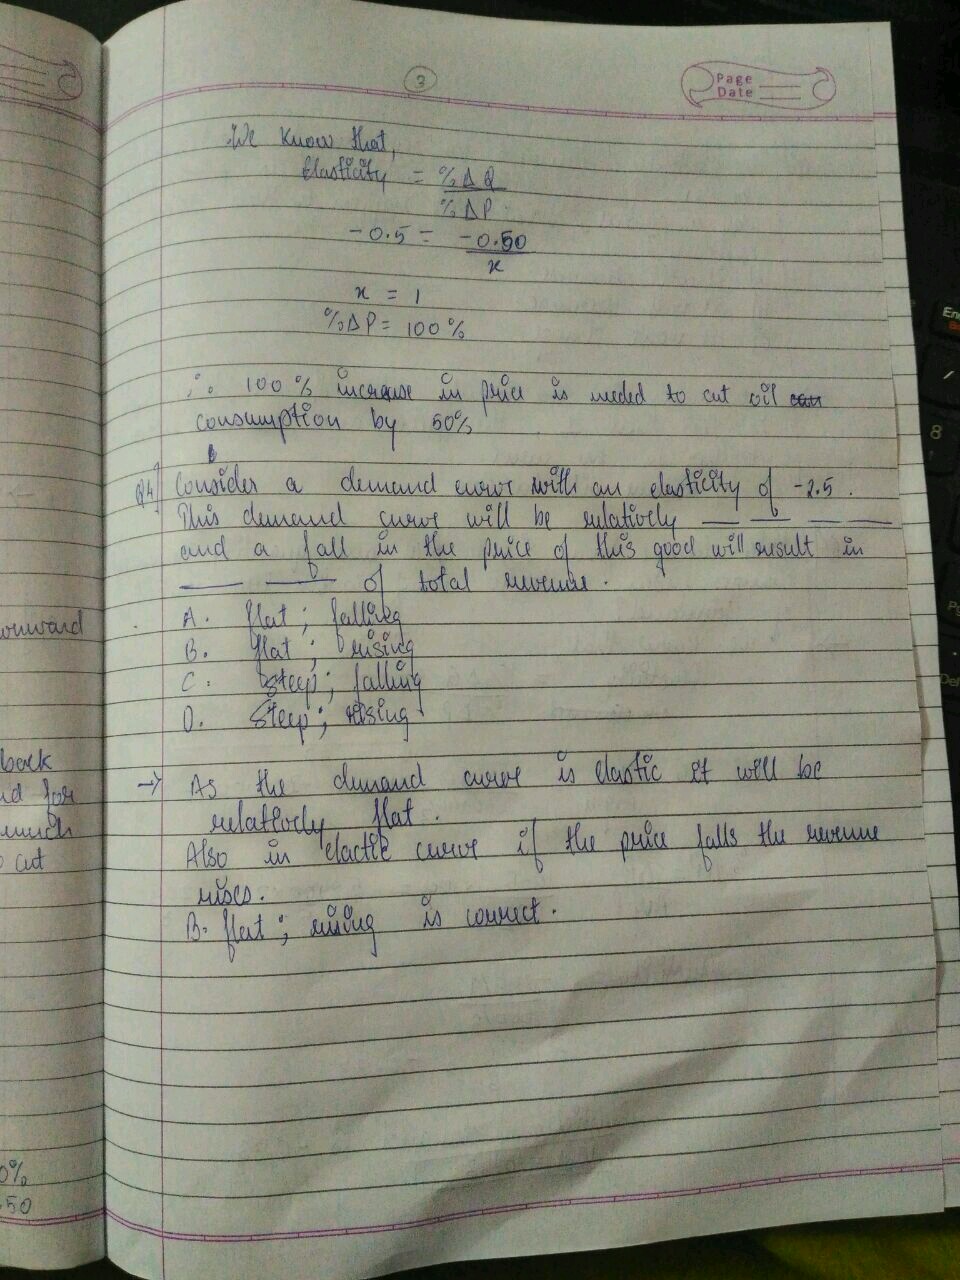 3
Page
Date
We know that,
Elasticity = %ΔQ
%ΔP
-0.5 = -0.50
x
x = 1
%ΔP = 100%
∴ 100% increase in price is needed to cut oil
consumption by 50%
Q4] Consider a demand curve with an elasticity of -2.5.
This demand curve will be relatively __ __ __ __
and a fall in the price of this good will result in
__ __ of total revenue.
A. flat; falling
B. flat; rising
C. steep; falling
D. steep; rising
→ As the demand curve is elastic it will be
relatively flat.
Also in elastic curve if the price falls the revenue
rises.
B. flat; rising is correct.
back
much
cut
0%
.50